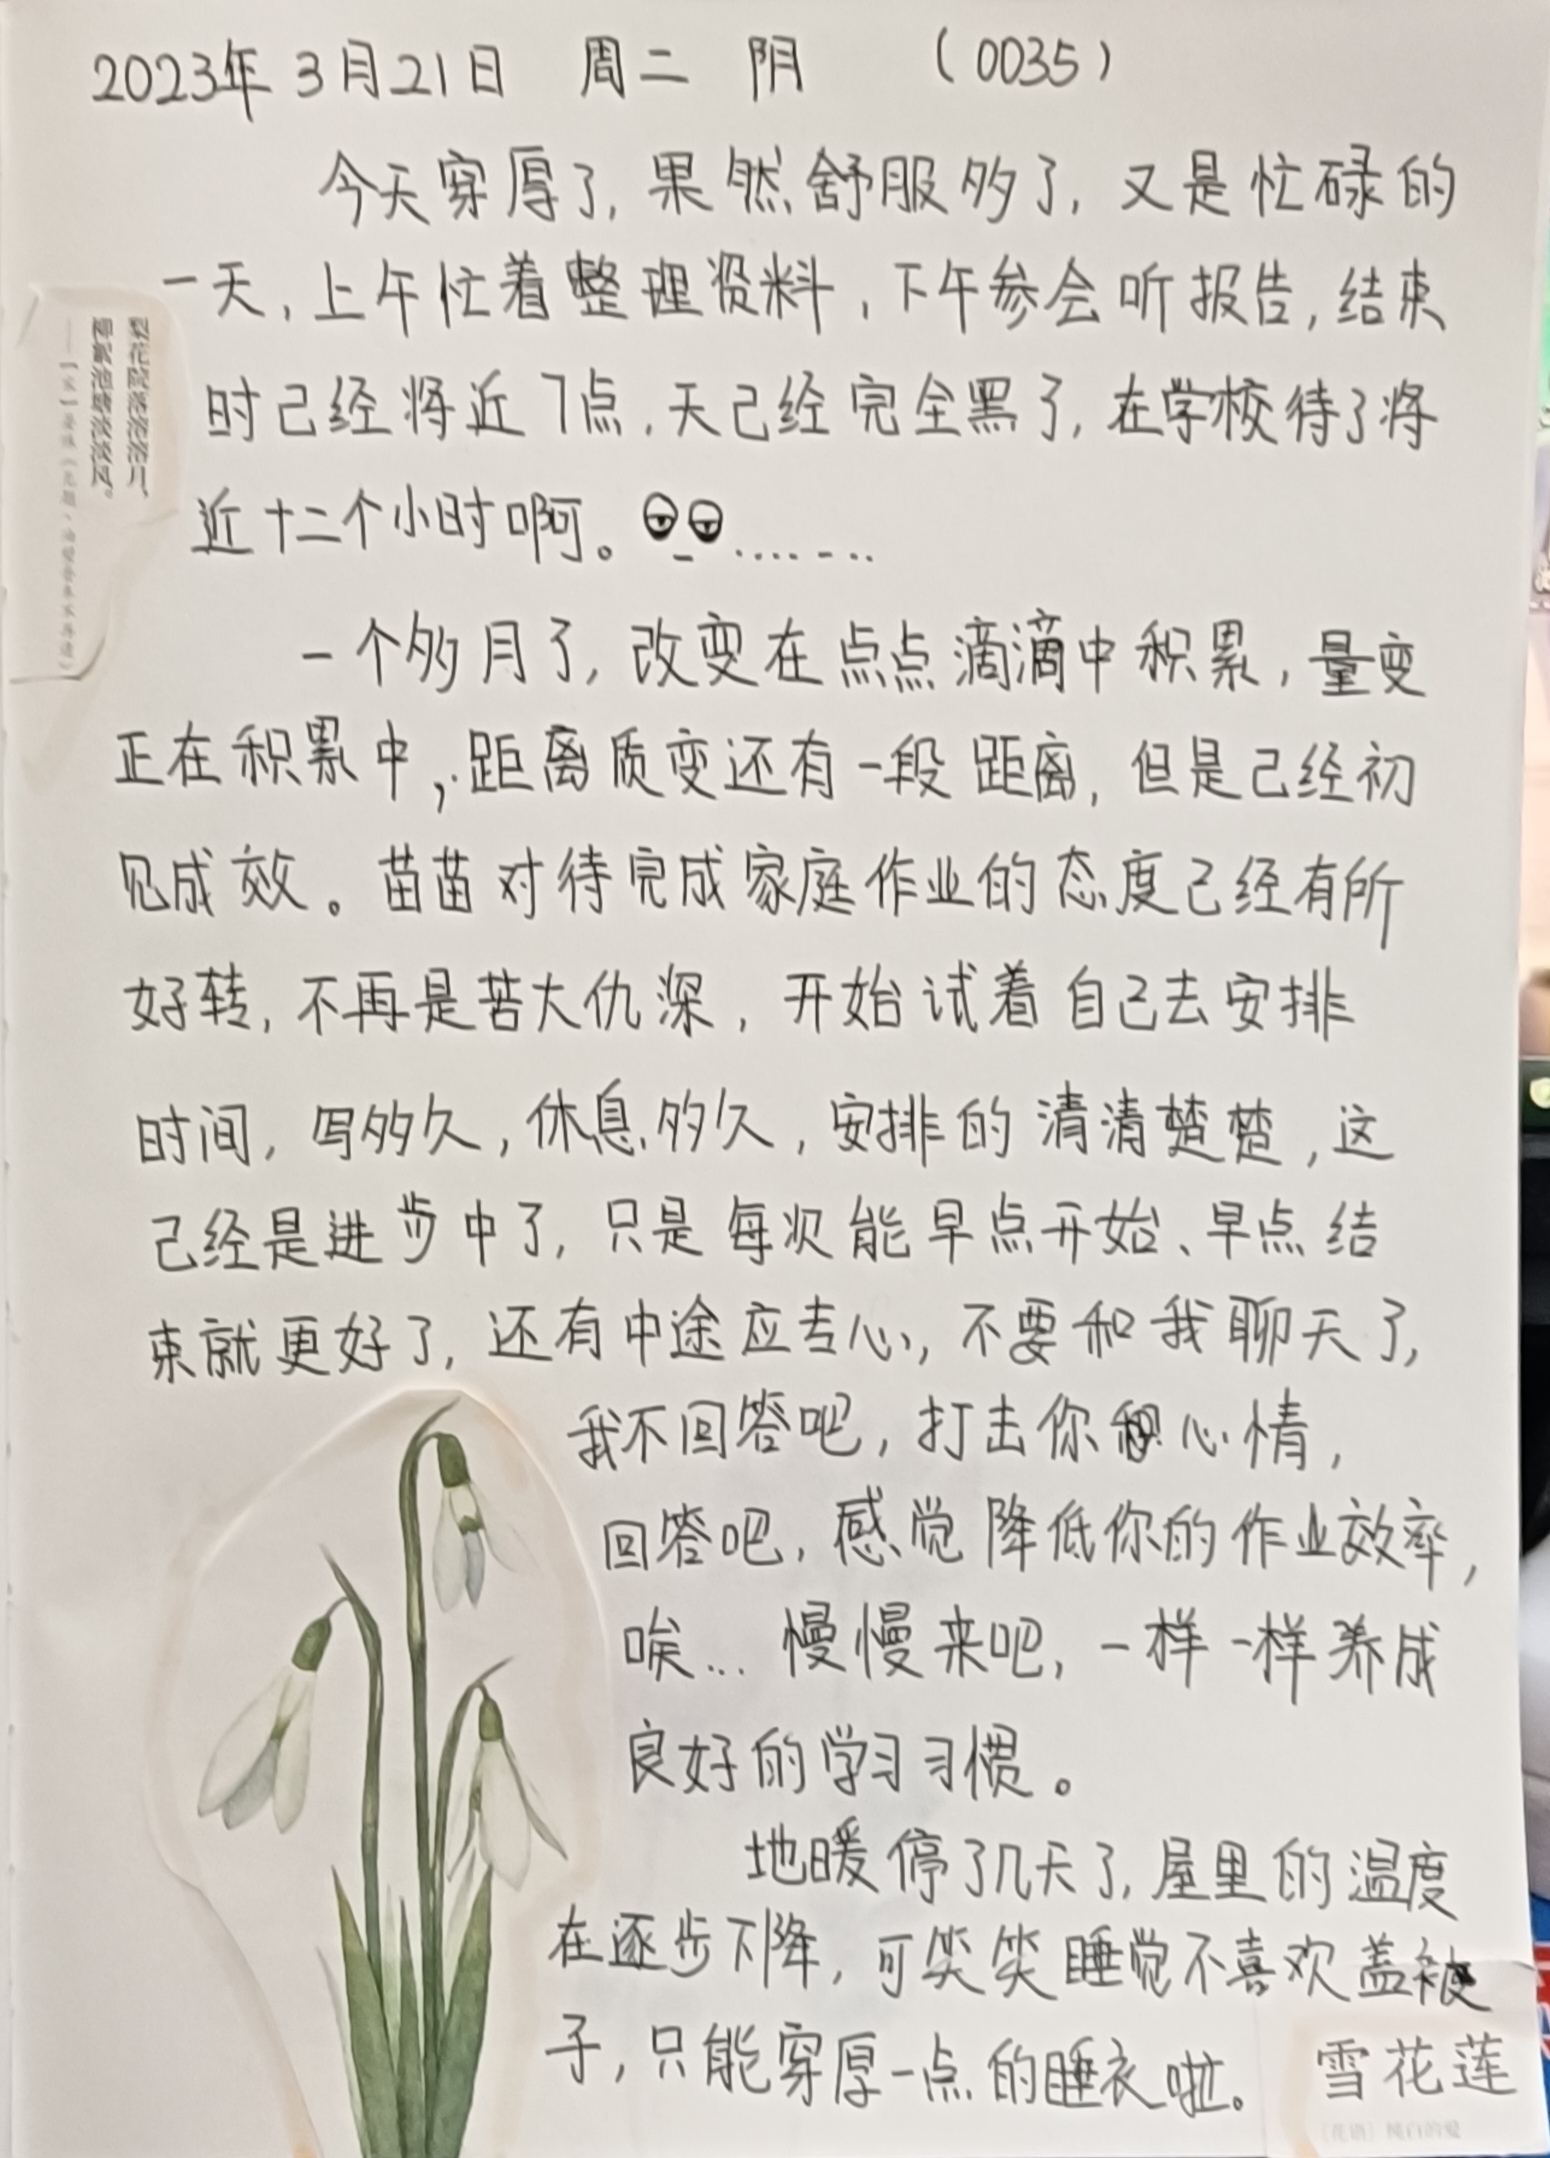 2023年3月21日 周二 阴 （0035）
今天穿厚了，果然舒服多了，又是忙碌的
一天，上午忙着整理资料，下午参会听报告，结束
时已经将近7点，天已经完全黑了，在学校待了将
近十二个小时啊。.......
一个多月了，改变在点点滴滴中积累，量变
正在积累中，距离质变还有一段距离，但是已经初
见成效。苗苗对待完成家庭作业的态度已经有所
好转，不再是苦大仇深，开始试着自己去安排
时间，写多久，休息多久，安排的清清楚楚，这
已经是进步中了，只是每次能早点开始、早点结
束就更好了，还有中途应专心，不要和我聊天了，
我不回答吧，打击你心情，
回答吧，感觉降低你的作业效率，
唉...慢慢来吧，一样一样养成
良好的学习习惯。
地暖停了几天了，屋里的温度
在逐步下降，可笑笑睡觉不喜欢盖被
子，只能穿厚一点的睡衣啦。
梨花院落溶溶月，
柳絮池塘淡淡风。
——［宋］晏殊《无题·油壁香车不再逢》
雪花莲
［花语］纯白的爱